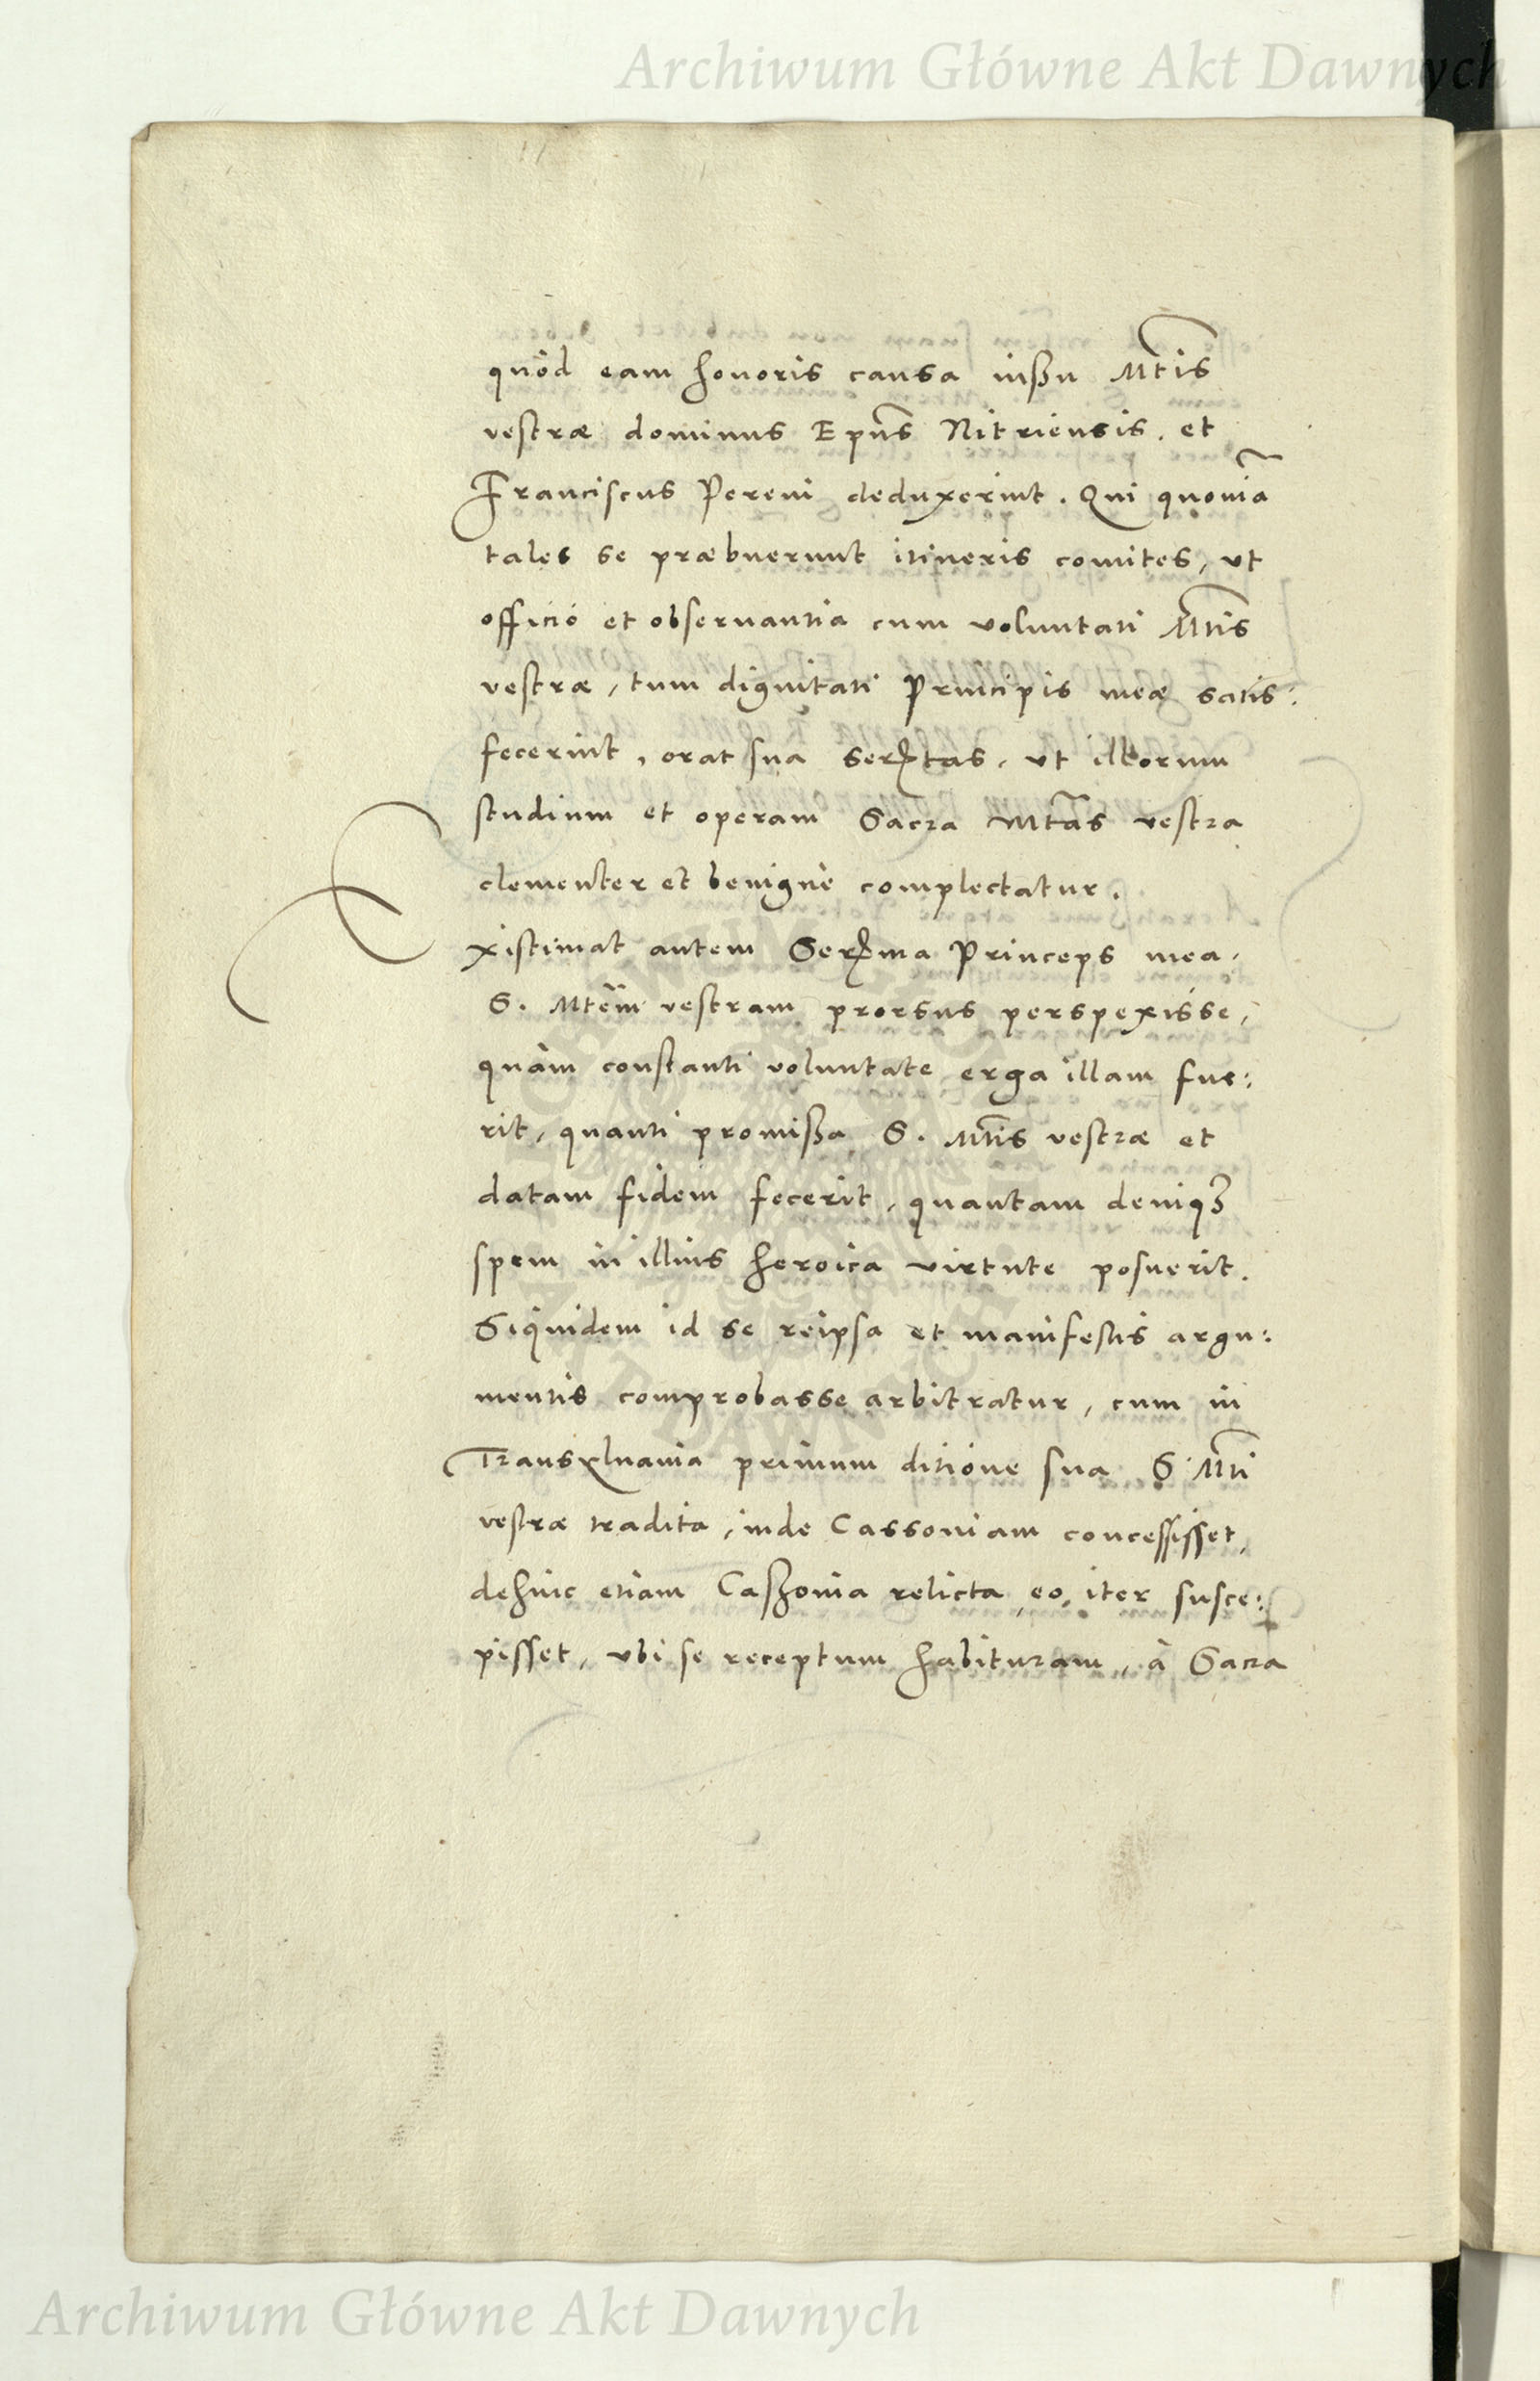 Archiwum Główne Akt Dawnych
quòd eam honoris causa iussu Mtis
vestræ dominus Epus Nitriensis, et
Franciscus Pereni deduxerint. Qui quoniã
tales se præbuerunt itineris comites, vt
officio et obseruantia cum voluntati Mtis
vestræ, tum dignitati Principis meæ satis:
fecerint, orat sua Serptas, vt illorum
studium et operam Sacra Mtas vestra
clementer et benignè complectatur.
Existimat autem Serpma Princeps mea,
S. Mtem vestram prorsus perspexisse,
quàm constanti voluntate erga illam fue:
rit, quanti promißa S. Mtis vestræ et
datam fidem fecerit, quantam deniq3
spem in illius heroica virtute posuerit.
Siquidem id se reipsa et manifestis argu:
mentis comprobasse arbitratur, cum in
Transyluania primum ditione sua S. Mti
vestræ tradita, inde Cassouiam concessisset,
dehinc etiam Caßouia relicta, eo, iter susce:
pisset, vbi se receptum habituram, à Sacra
Archiwum Główne Akt Dawnych